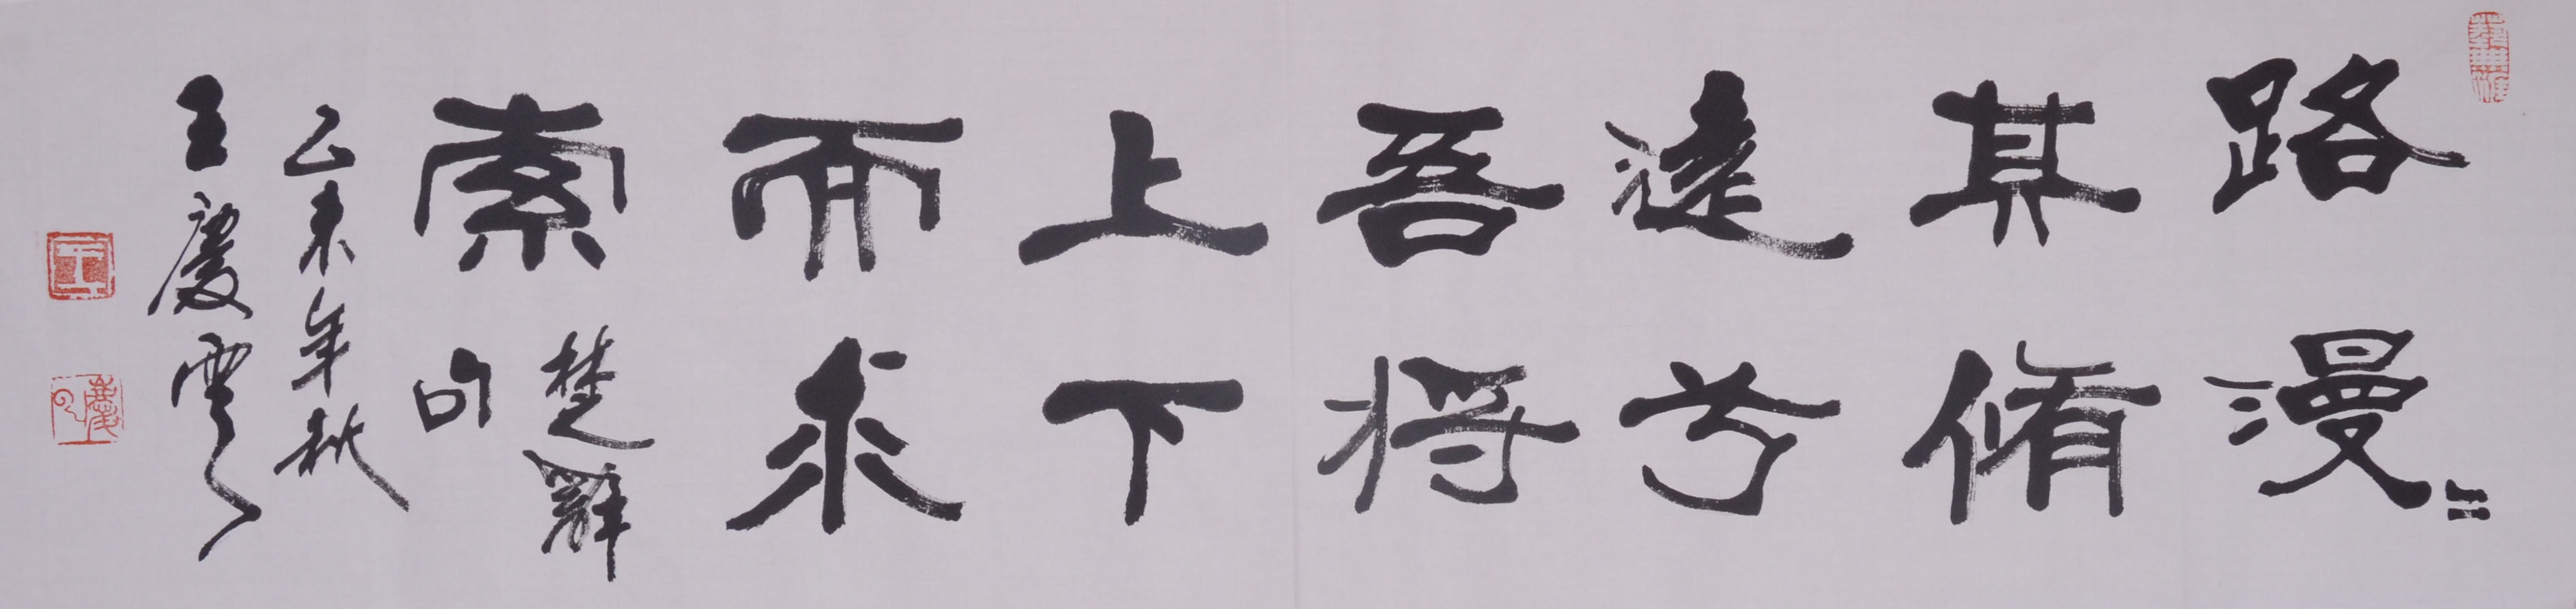 路漫〻
其脩
遠兮
吾将
上下
而求
索
楚辭
句
乙未年秋
王慶雲
王
慶云